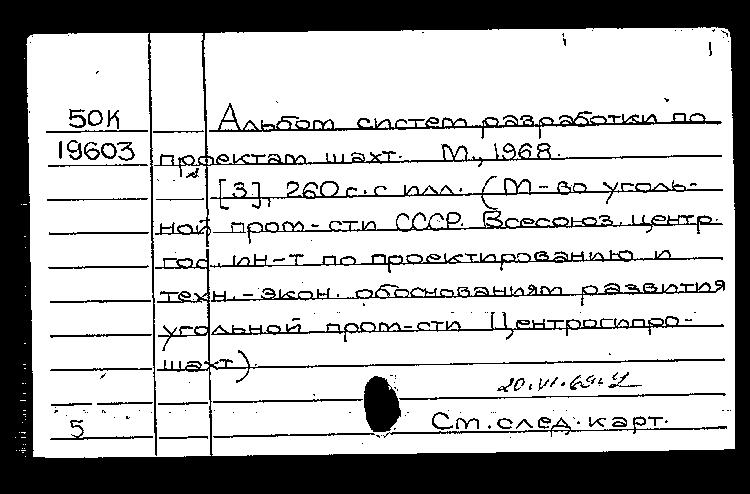 50К Альбом систем разработки по
19603 проектам шахт. М., 1968.
[3], 260 с. с илл. (М-во уголь-
ной пром-сти СССР. Всесоюз. центр.
гос. ин-т по проектированию и
техн.-экон. обоснованиям развития
угольной пром-сти Центрогипро-
шахт)
20.VI.69.
5 См. след. карт.